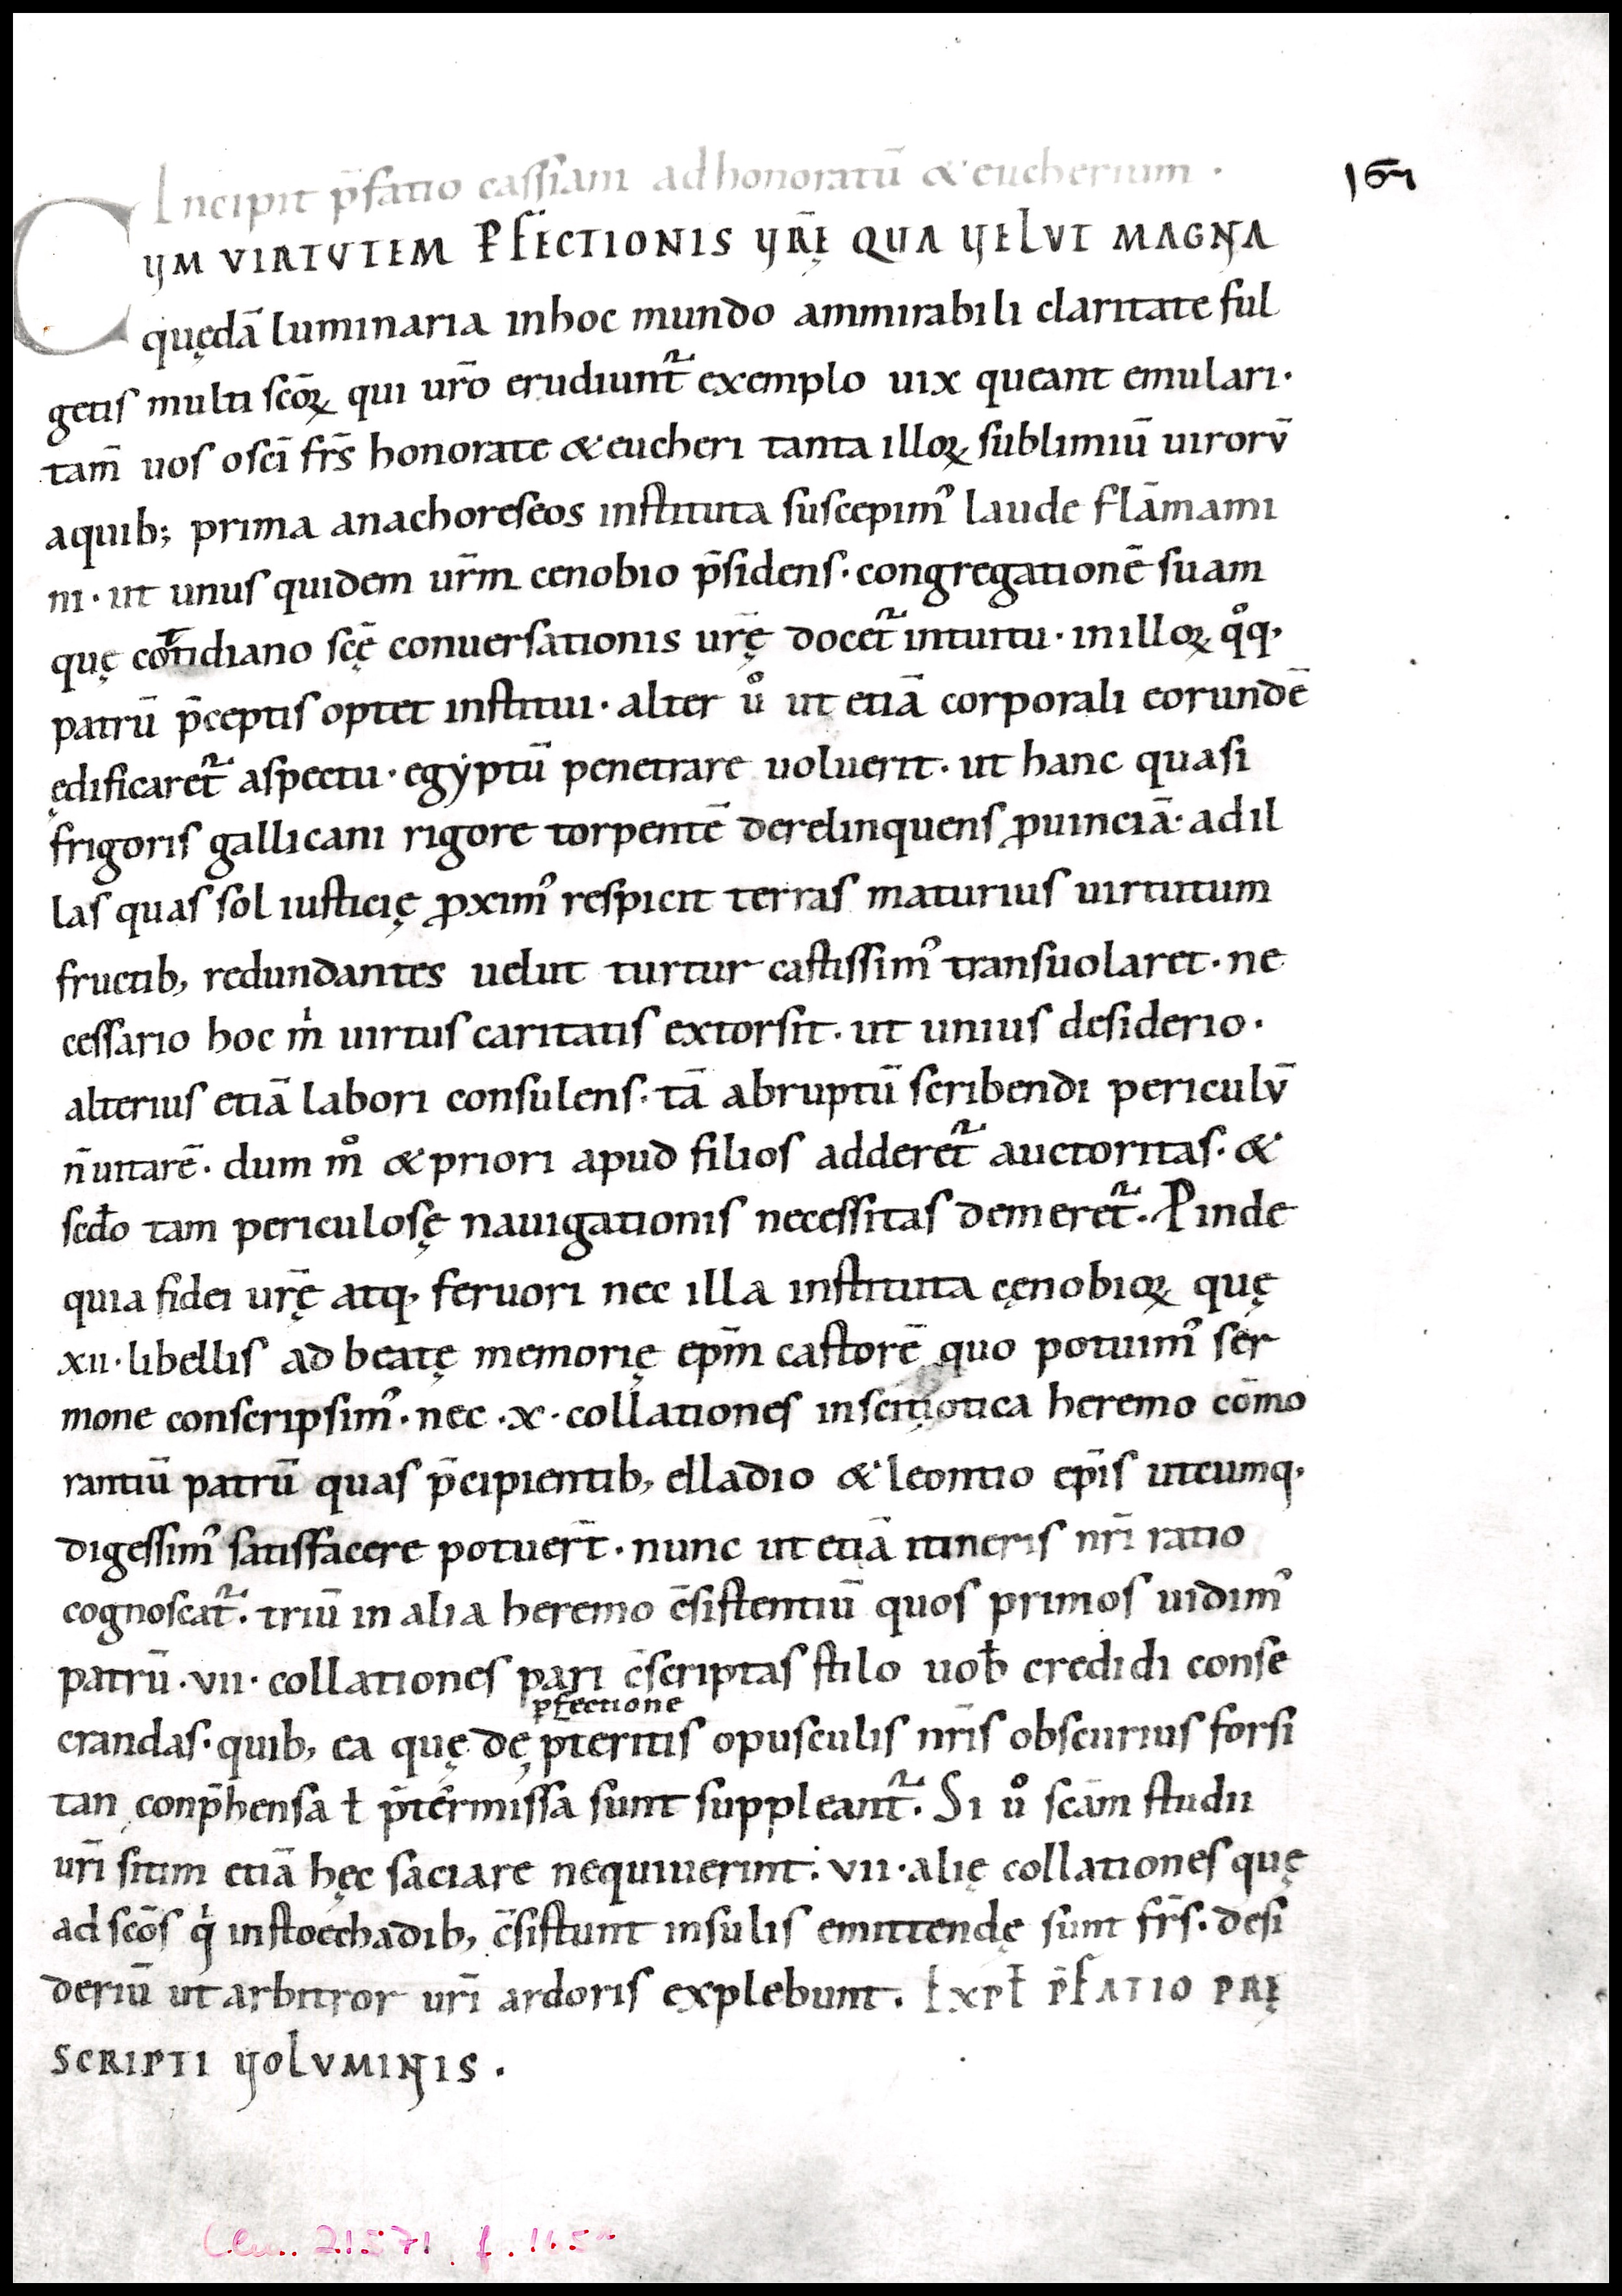 Incipit p̄fatio cassiani ad honoratū & eucherium .
167
CUM VIRTUTEM PFECTIONIS VR̄Ę QUA VELUT MAGNA
quędā luminaria inhoc mundo ammirabili claritate ful
getis multi sc̄oꝝ qui ur̄o erudiunt᷑ exemplo uix queant emulari·
tam̄ uos osc̄i fr̄s honorate & eucheri tanta illoꝝ sublimiū uirorū
aquib; prima anachoreseos instituta suscepim᾿ laude flāmami
ni · ut unus quidem ur̄m cenobio p̄sidens · congregationē suam
quę cottidiano sc̄ę conuersationis ur̄ę docet᷑ intuitu · inilloꝝ qͦq,
patrū p̄ceptis optet institui · alter uͦ ut etiā corporali eorundē
ędificaret᷑ aspectu · egẏptū penetrare uoluerit · ut hanc quasi
frigoris gallicani rigore torpentē derelinquens ꝓuinciā · ad il
las quas sol iusticię ꝓxim᾿ respicit terras maturius uirtutum
fructib, redundantes uelut turtur castissim᾿ transuolaret · ne
cessario hoc mͥ uirtus caritatis extorsit · ut unius desiderio ·
alterius etiā labori consulens · tā abruptū scribendi periculū
n̄ uitarē · dum mͦ & priori apud filios adderet᷑ auctoritas · &
sc̄do tam periculosę nauigationis necessitas demeret᷑ . Pinde
quia fidei ur̄ę atq, feruori nec illa instituta cęnobioꝝ quę
xii · libellis ad beatę memorię ep̄m castorē quo potuim᾿ ser
mone conscripsim᾿ · nec · x · collationes insciţiotica heremo cōmo
rantiū patrū quas p̄cipientib, elladio & leontio ep̄is utcumq,
digessim᾿ satisfacere potuer̄t · nunc ut etiā itineris nr̄i ratio
cognoscat᷑ . triū in alia heremo c̄sistentiū quos primos uidim᾿
patrū · vii · collationes pari c̄scriptas stilo uob̄ credidi conse
pfectione
crandas · quib, ea quę dę pteritis opusculis nr̄is obscurius forsi
tan conp̄hensa ł p̄termissa sunt suppleant᷑ . Si uͦ sc̄am studii
ur̄i sitim etiā hęc saciare nequiuerint . vii · alię collationes quę
ad sc̄os qͥ instoechadib, c̄sistunt insulis emittendę sunt fr̄s . desi
deriū ut arbitror ur̄i ardoris explebunt . EXPŁ P̄FATIO PRĘ
SCRIPTI VOLUMINIS .
Clm. 21571, f. 165r